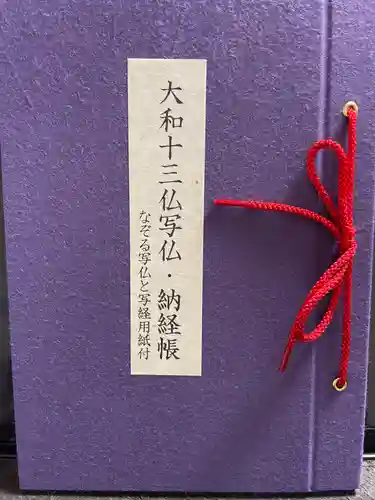 大和十三仏写仏・納経帳
なぞる写仏と写経用紙付